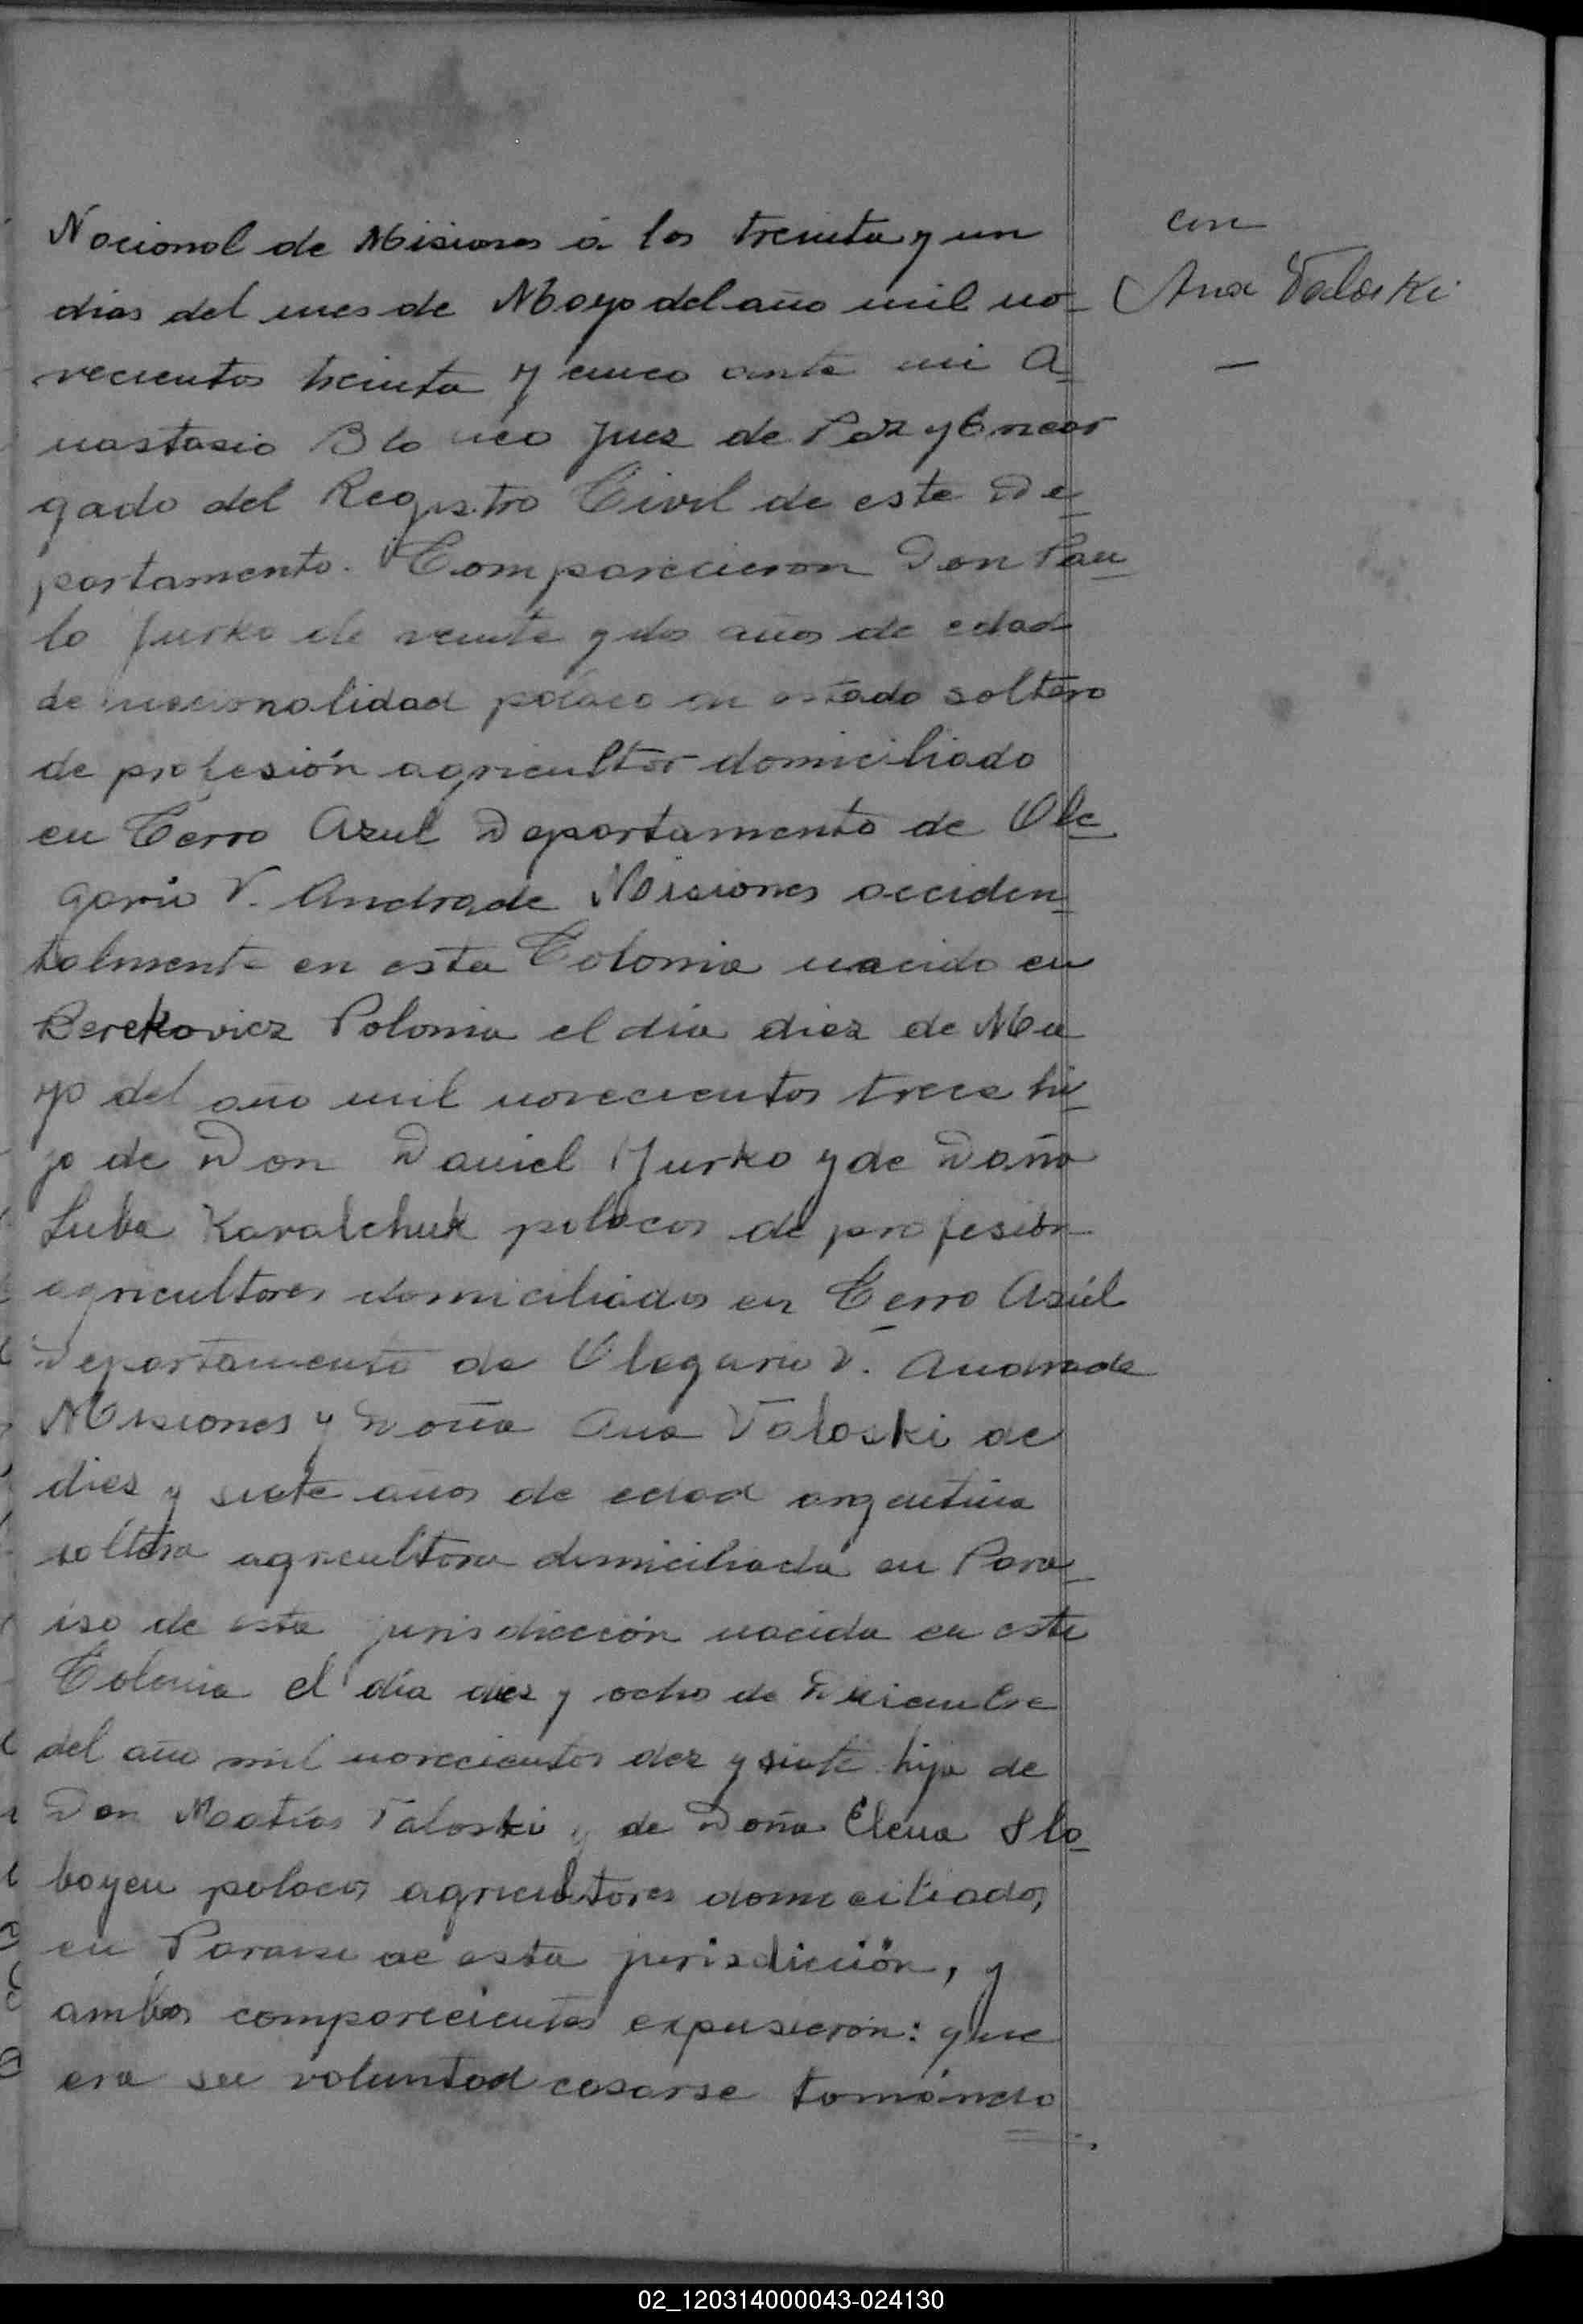 Nacional de Misiones á los treinta y un
días del mes de Mayo del año mil no-
vecientos treinta y cinco ante mi A-
nastasio Blanco Juez de Paz y Encar
gado del Registro Civil de este De-
partamento. Comparecieron Don Pau-
lo Jurko de veinte y dos años de edad
de nacionalidad polaco en estado soltero
de profesión agricultor domiciliado
en Cerro Azul Departamento de Ole-
gario V. Andrade Misiones acciden-
talmente en esta Colonia nacido en
Berekovicz Polonia el día diez de Ma-
yo del año mil novecientos trece hi-
jo de Don Daniel Yurko y de Doña
Luba Kavalchuk polacos de profesión
agricultores domiciliados en Cerro Azúl
Departamento de Olegario V. Andrade
Misiones y Doña Ana Valoski de
diez y siete años de edad argentina
soltera agricultora domiciliada en Para-
iso de esta jurisdicción nacida en esta
Colonia el día diez y ocho de Diciembre
del año mil novecientos diez y siete hija de
Don Matías Valoski y de Doña Elena Slo-
boyen polacos agricultores domiciliados
en Paraiso de esta jurisdicción, y
ambos comparecientes expusieron: que
era su voluntad casarse tomándo
con
Ana Valoski
02_120314000043-024130